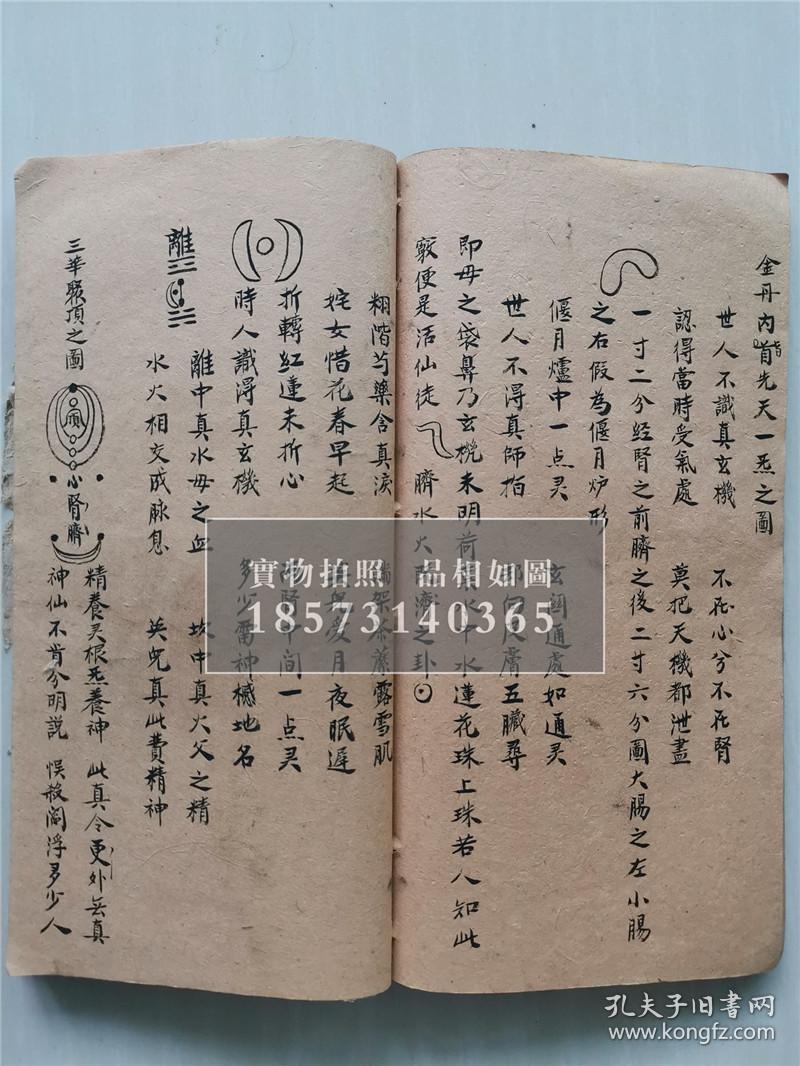 金丹内首先天一炁之圖
指
世人不識真玄機 不在心兮不在腎
認得當時受氣處 莫把天機都泄盡
一寸二分經腎之前臍之後二寸六分圖大腸之左小腸
之右假為偃月炉形
偃月爐中一点灵 玄關通處如通灵
世人不得真師指 皮膚五臟尋
即母之袋鼻乃玄機未明荷 中水蓮花珠上珠若人知此
竅便是活仙徒 臍水火既濟之卦
翱階芍藥含真淚 架荼蘼露雪肌
姹女惜花春早起 愛月夜眠遲
折轉紅蓮未折心 腎中间一点灵
時人識得真玄機 多少雷神撼地名
離中真水母之血 坎中真火父之精
離
水火相交成脉息 英兒真此費精神
三華聚頂之圖
心腎臍
精養灵根炁養神 此真令更外無真
神仙不肯分明説 悮殺閻浮多少人
實物拍照 品相如圖
18573140365
孔夫子旧書网
www.kongfz.com